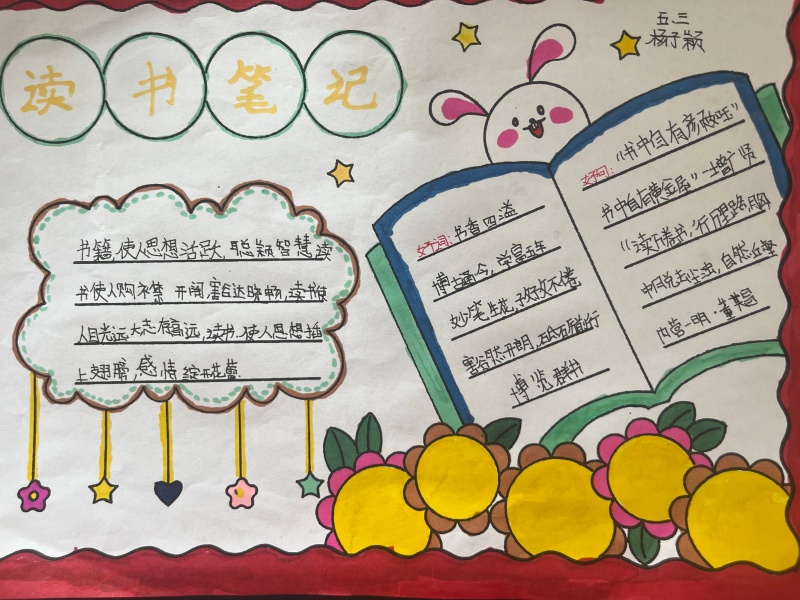 读书笔记
五.三
杨子颖
书籍,使人思想活跃,聪颖智慧读
书使人胸襟开阔,豁达晓畅,读书使
人目光远大志存高远,读书.使人思想插
上翅膀,感情绽开花蕾.
好词:书香四溢
博古通今,学富五车
妙笔生花,孜孜不倦
豁然开朗,
博览群书
好句:"书中自有颜如玉"
书中自有黄金屋"—增广贤
"读万卷书,行万里路,胸
中脱去尘浊,自然丘壑
内营—明·董其昌